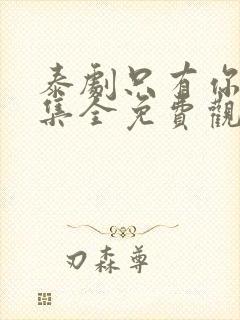 泰劇只有你
集全免費觀
刃森尊